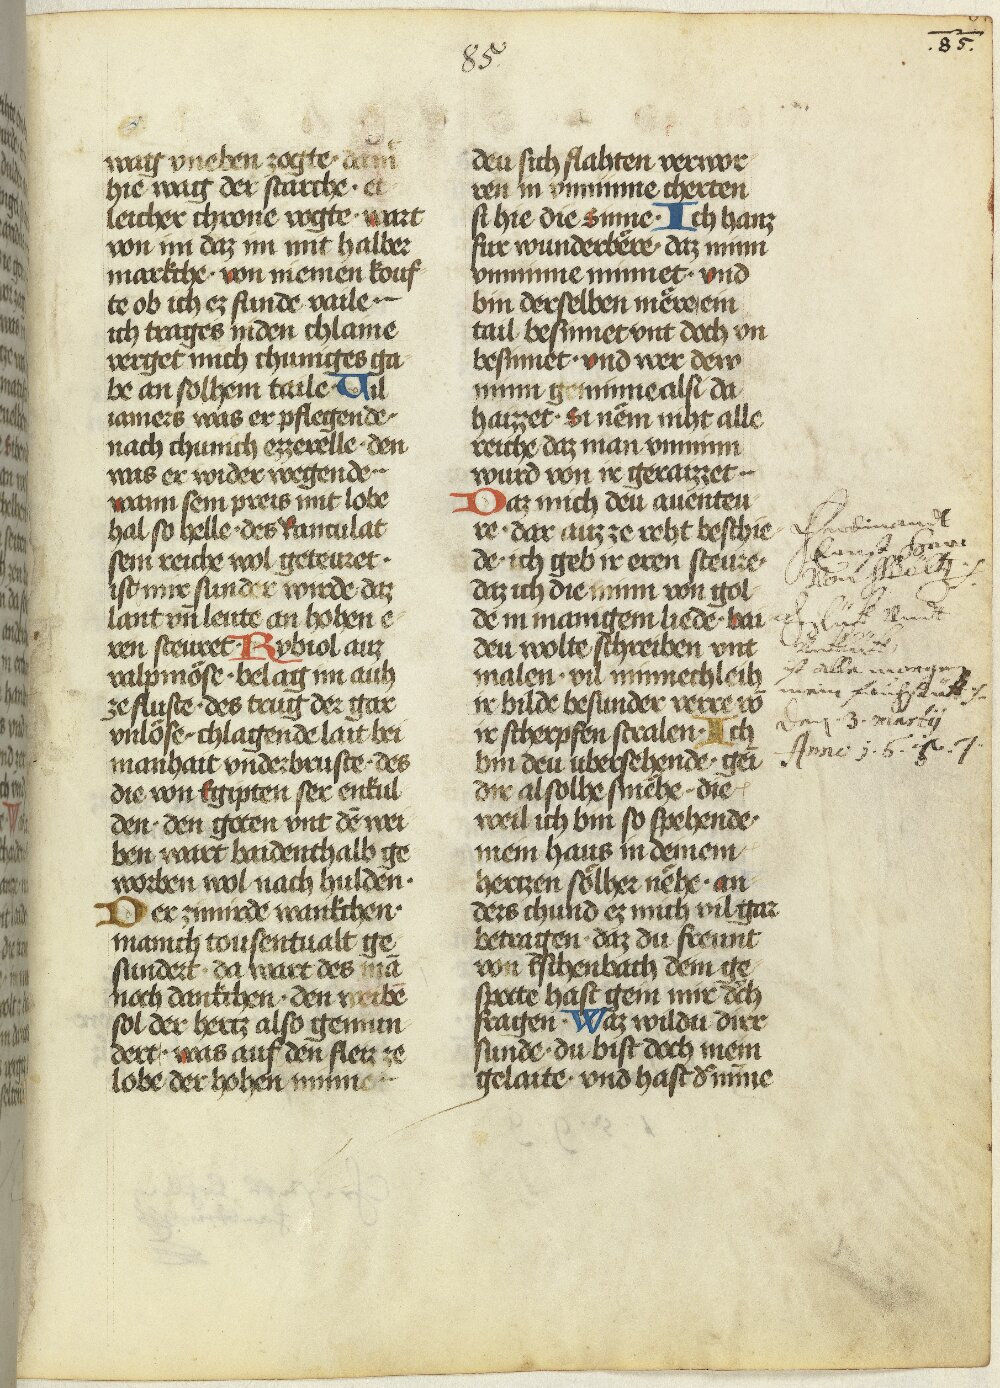 85
.85.
warf vneben zogte · dann
hie warf der starche · et
leicher chrone vogte · wart
von im daz im mit halber
markche · von meinen kouf
te ob ich ez funde vaile ·
ich trages inden chlame
verget mich chuniges ga
be an solhem taile · Vil
iamers was er pflegende
nach chunich ezzerelle · den
was er wider wegende ·
wann sein preis mit lobe
hal so helle · des kanculat
sein reiche wol geteuret ·
ist mir sunder wirde daz
lant vñ leute an hohen e
ren steuret · Rybiol auz
valpinöse · belag im auh
ze fluste · des trug der gar
vnlöse · chlagende lait bei
manhait vnderbruste · des
die von Egipten ser enkul
den · den goten vnt dē wei
ben wart baidenthalb ge
worben wol nach hulden ·
Der zimirde wankchen ·
manich tousentualt ge
sundert · da wart des mā
noch dankchen · den weibē
sol der hertz also gemun
dert · was auf den fletz ze
lobe der hohen minne ·
deu sich flahten verwor
ren in vnminne cherten
si hie die sinne · Ich hanz
fur wunderbëre · daz minn
vnminne nimmet · vnd
bin derselben mëre ein
tail besinnet vnt doch vn
besinnet · vnd wer dew
minn geminne alsi da
haizzet · si nëm niht alle
reiche daz man vnminn
wurd von ir geraizzet ·
Daz mich deu auenteu
re · dar auz ze reht beschie
de · ich geb ir eren steure ·
daz ich die minn von gol
de in manigem liede · bai
deu wolte schreiben vnt
malen · vil minnechleih
ir bilde besunder verre vō
ir scherpfen stralen · Ich
bin deu ubersehende · gei
dir al solhe smëhe · die
weil ich bin so spehende ·
mein haus in deinem
hertzen sölher nëhe · an
ders chund ez mich vil gar
betragen · daz du freunt
von Eschenbach dem ge
spote hast gein mir doch
fragen · Waz wildu dirr
sunde · du bist doch mein
gelaite · vnd hast d minne
Ferdinandt
ist alle morgen
Den · 3 · martij
Anno 1 · 5 ·